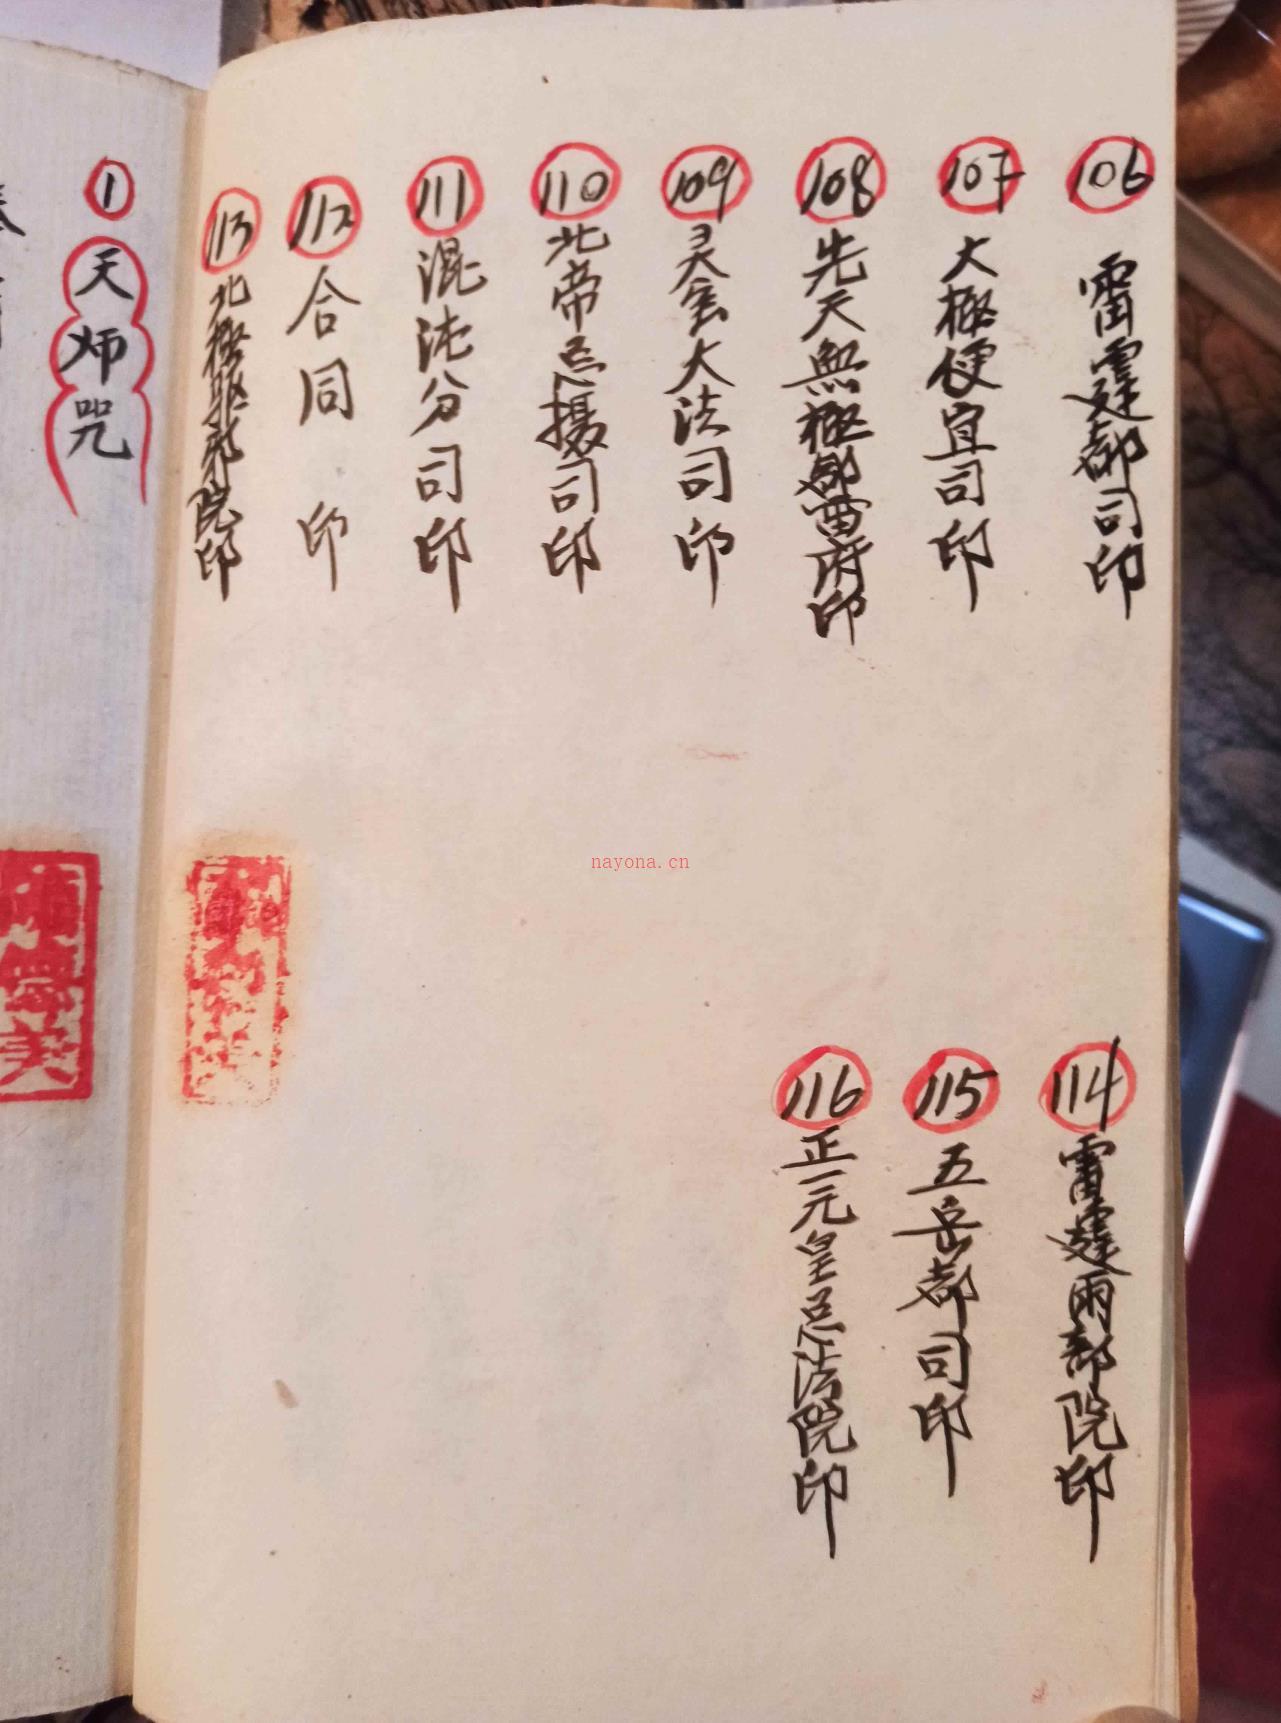 106 雷霆都司印
107 大極便宜司印
108 先天無極都雷府印
109 灵宝大法司印
110 北帝总摄司印
111 混沌分司印
112 合同印
113 北極驱邪院印
114 雷霆雨部院印
115 五岳都司印
116 正一元皇总法院印
1 天师咒
nayona.cn